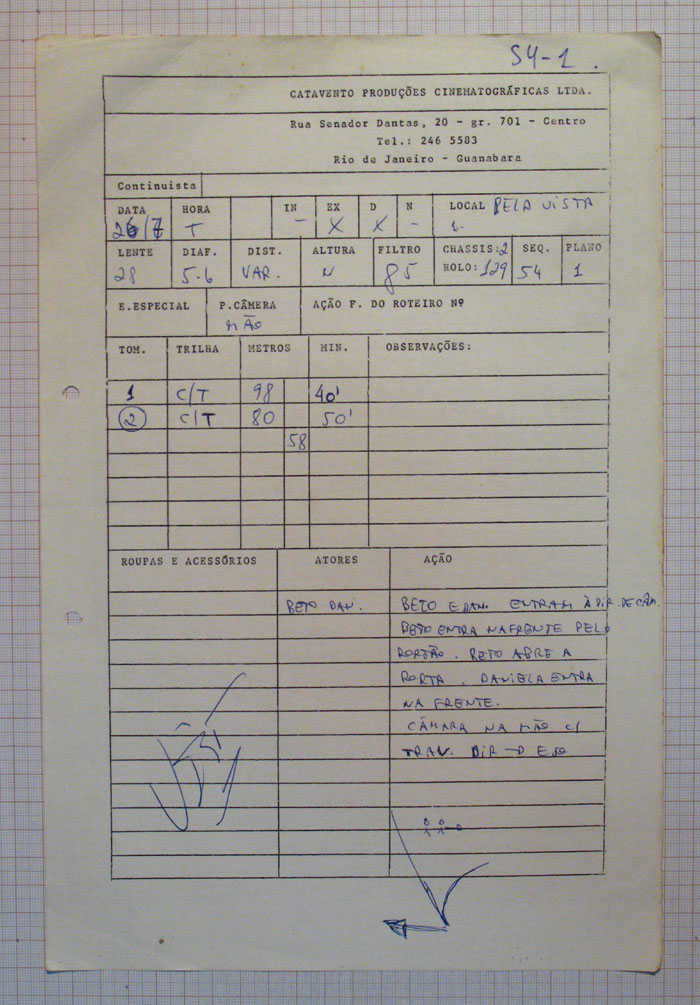 54-1.
CATAVENTO PRODUÇÕES CINEMATOGRÁFICAS LTDA.
Rua Senador Dantas, 20 - gr. 701 - Centro
Tel.: 246 5583
Rio de Janeiro - Guanabara
Continuista
DATA HORA IN EX D N LOCAL BELA VISTA
26/7 T - X X -
LENTE DIAF. DIST. ALTURA FILTRO CHASSIS: 2 SEQ. PLANO
28 5.6 VAR. N 85 ROLO: 129 54 1
E.ESPECIAL P.CÂMERA AÇÃO F. DO ROTEIRO Nº
MÃO
TOM. TRILHA METROS MIN. OBSERVAÇÕES:
1 C/T 98 40'
2 C/T 80 50'
58
ROUPAS E ACESSÓRIOS ATORES AÇÃO
BETO DAN. BETO E DAN. ENTRAM À DIR. DE CÂM.
BETO ENTRA NA FRENTE PELO
PORTÃO. BETO ABRE A
PORTA. DANIELA ENTRA
NA FRENTE.
CÂMARA NA MÃO C/
TRAV. DIR → ESQ